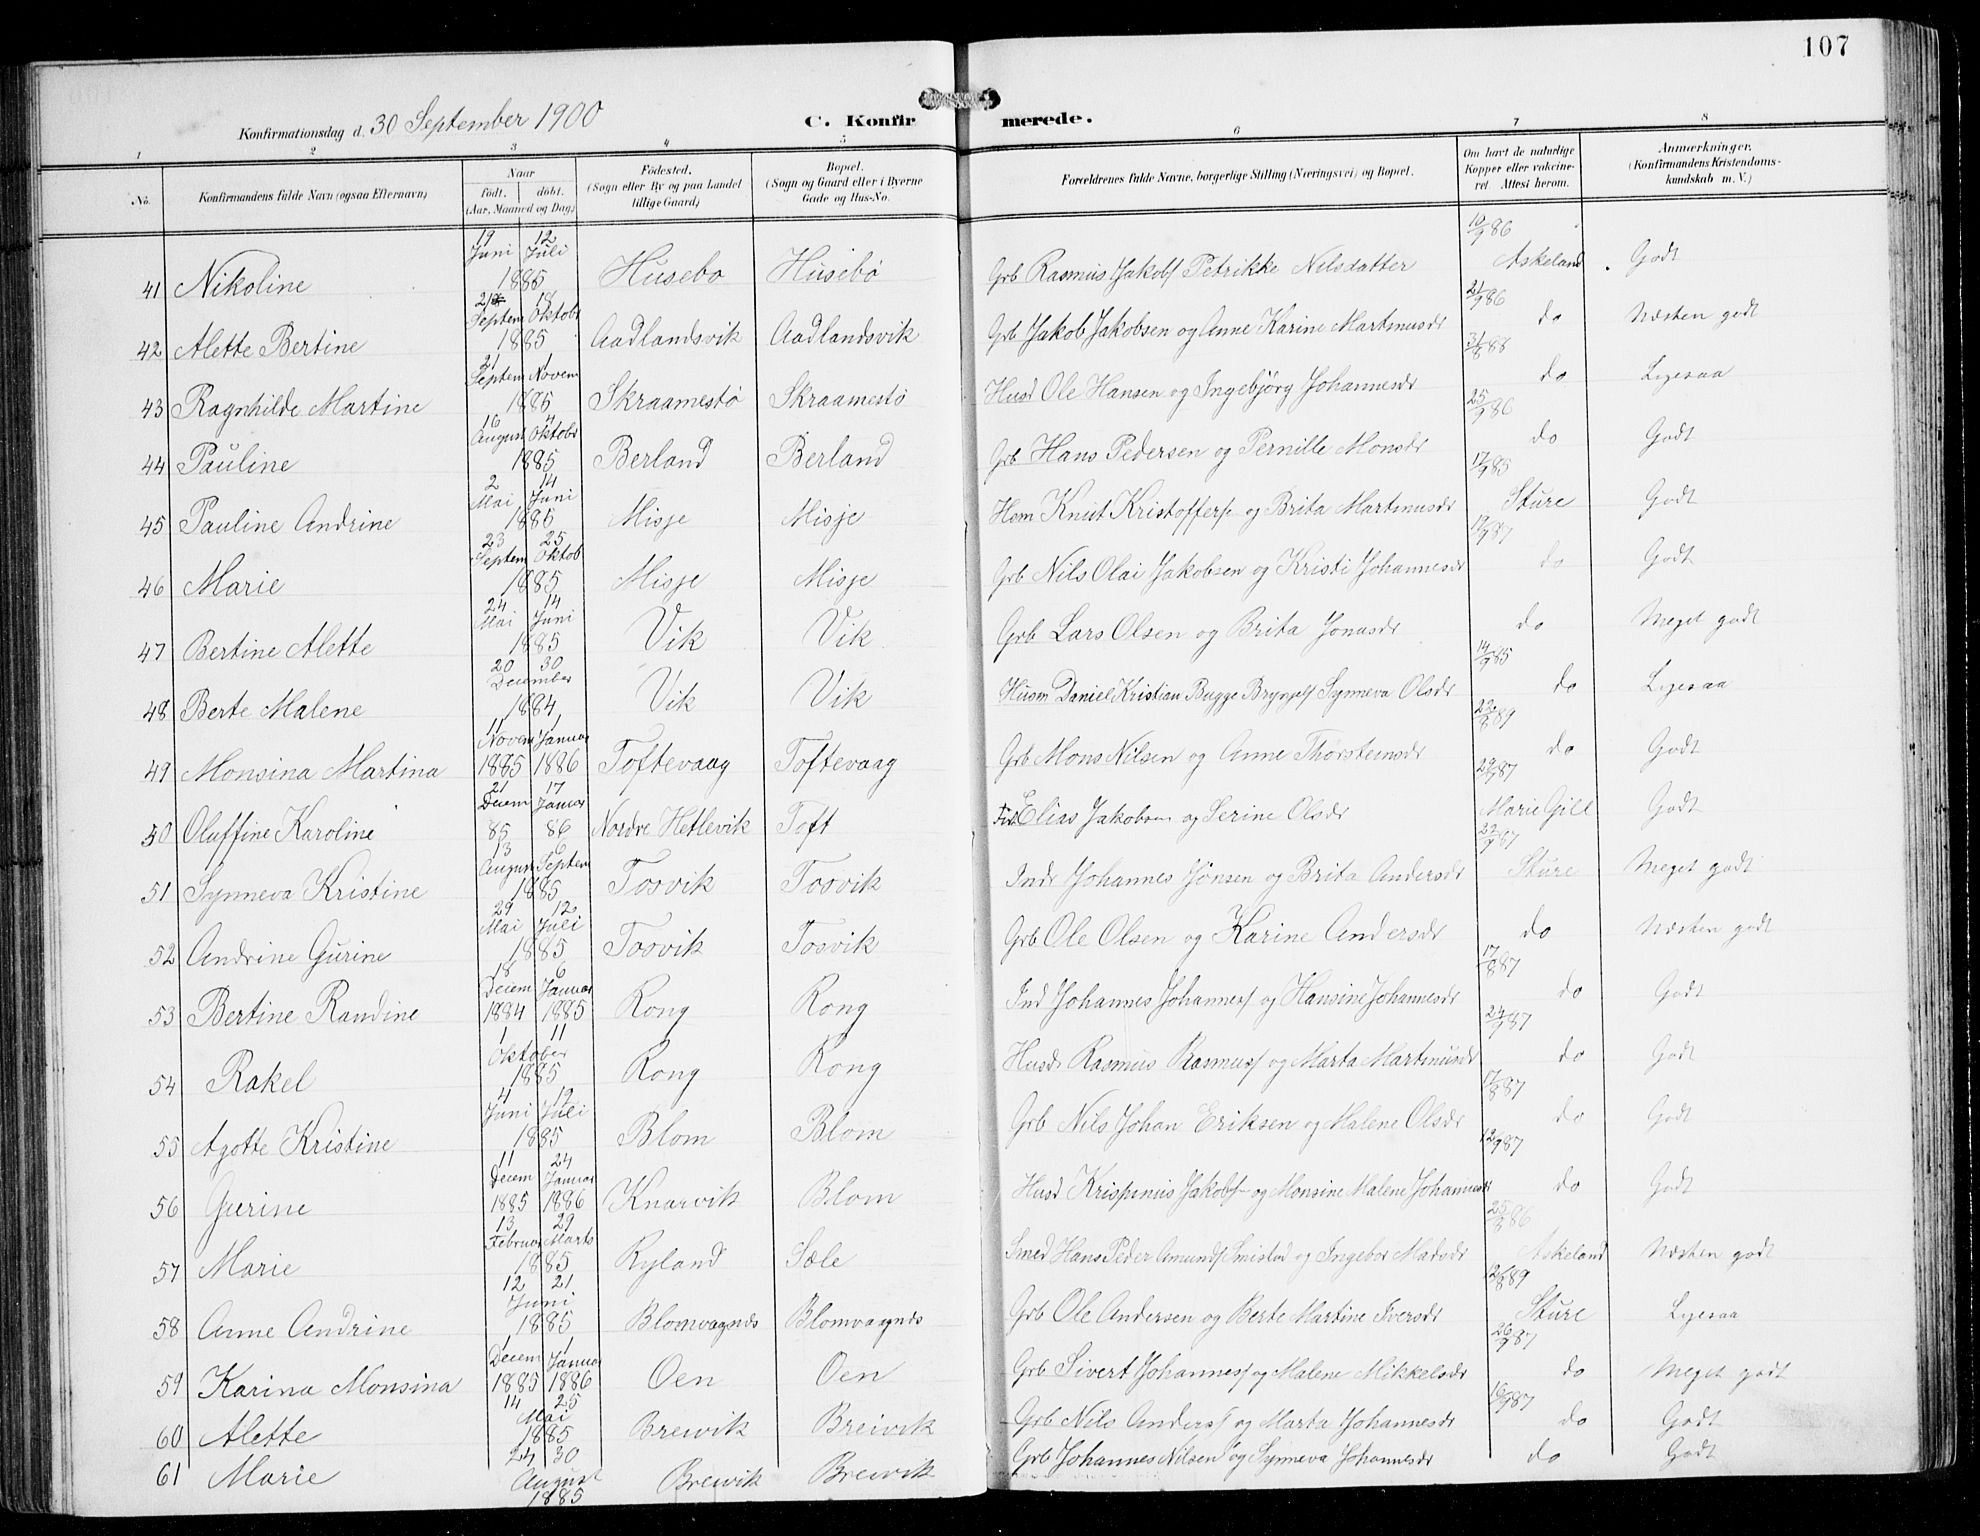 107
Konfirmationsdag d. 30 September 1900
C. Konfirmerede.
1 2 3 4 5 6 7 8
No. Konfirmandens fulde Navn (ogsaa Efternavn) Naar födt. döbt. (Aar, Maaned og Dag) Födested. (Sogn eller By og paa Landet tillige Gaard) Bopæl. (Sogn og Gaard eller i Byerne Gade og Hus-No. Forældrenes fulde Navne, borgerlige Stilling (Næringsvei) og Bopæl. Om havt de naturlige Kopper eller vakcineret. Attest herom. Anmærkninger. (Konfirmandens Kristendomskundskab m. V.)
41 Nikoline 19 Juni 12 Juli 1885 Husebø Husebø Grb Rasmus Jakobs Petrikke Nilsdatter 10/9 86 Askeland Godt
42 Alette Bertine Septem 18 Oktobr 1885 Aadlandsvik Aadlandsvik Grb Jakob Jakobsen og Anne Karine Martinusdr 21/9 86 do Næsten godt
43 Ragnhilde Martine 21 Septem 1 Novem 1885 Skraamestö Skraamestö Husd Ole Hansen og Ingebjörg Johannesdr 31/8 88 do Ligesaa
44 Pauline 16 August 4 Oktobr 1885 Berland Berland Grb Hans Pedersen og Pernille Monsdr 25/9 86 do Godt
45 Pauline Andrine 2 Mai 14 Juni 1885 Misje Misje Hem Knut Kristoffers og Brita Martinusdr 17/9 85 Sture Godt
46 Marie 23 Septem 25 Oktob 1885 Misje Misje Grb Nils Olai Jakobsen og Kristi Johannesdr 19/9 87 do Godt
47 Bertine Alette 24 Mai 14 Juni 1885 Vik Vik Grb Lars Olsen og Brita Jonasdr do Meget godt
48 Berte Malene 20 30 December 1884 Vik Vik Husm Daniel Kristian Bugge Brynjels Synneva Olsdr 14/9 85 do Ligesaa
49 Monsina Martina 11 Novem 1885 1 Januar 1886 Toftevaag Toftevaag Grb Mons Nilsen og Anne Thorsteinsdr 22/8 89 do Godt
50 Oluffine Karoline 21 Decem 85 17 Januar 86 Nordre Hetlevik Toft Fisk Elias Jakobsen og Serine Olsdr 29/9 87 Marie Gill Godt
51 Synneva Kristine 13 August 6 Septem 1885 Tosvik Tosvik Indr Johannes Jonsen og Brita Andersdr 22/9 87 Sture Meget godt
52 Andrine Gurine 29 Mai 12 Juli 1885 Tosvik Tosvik Grb Ole Olsen og Karine Andersdr do Næsten godt
53 Bertine Randine 18 Decem 1884 6 Januar 1885 Rong Rong Ind Johannes Johannes og Hansine Johannesdr 17/8 87 do Godt
54 Rakel 1 11 Oktober 1885 Rong Rong Husdr Rasmus Rasmus og Marta Martinusdr 24/9 87 do Godt
55 Agotte Kristine 4 Juni 12 Juli 1885 Blom Blom Grb Nils Johan Eriksen og Malene Olsdr 17/8 87 do Godt
56 Gurine 11 Decem 1885 24 Januar 1886 Knarvik Blom Husd Krispinus Jakobs og Monsine Malene Johannesdr 12/9 87 do Godt
57 Marie 13 Februar 29 Marts 1885 Ryland Sæle Smed Hans Peder Amunds Smistad og Ingebor Madsdr 25/8 86 Askeland Næsten godt
58 Anne Andrine 12 21 Juni 1885 Blomvagnæs Blomvagnæs Grb Ole Andersen og Berte Martine Iversdr 12/8 89 Sture Ligesaa
59 Karina Monsina 1 Decem 1885 1 Januar 1886 Oen Oen Grb Sivert Johannes og Malene Mikkelsdr 26/9 87 do Meget godt
60 Alette 14 25 Mai 1885 Breivik Breivik Grb Nils Anders og Marta Johannesdr 16/9 87 do Godt
61 Marie 24 30 August 1885 Breivik Breivik Grb Johannes Nilsen og Synneva Johannesdr do Godt